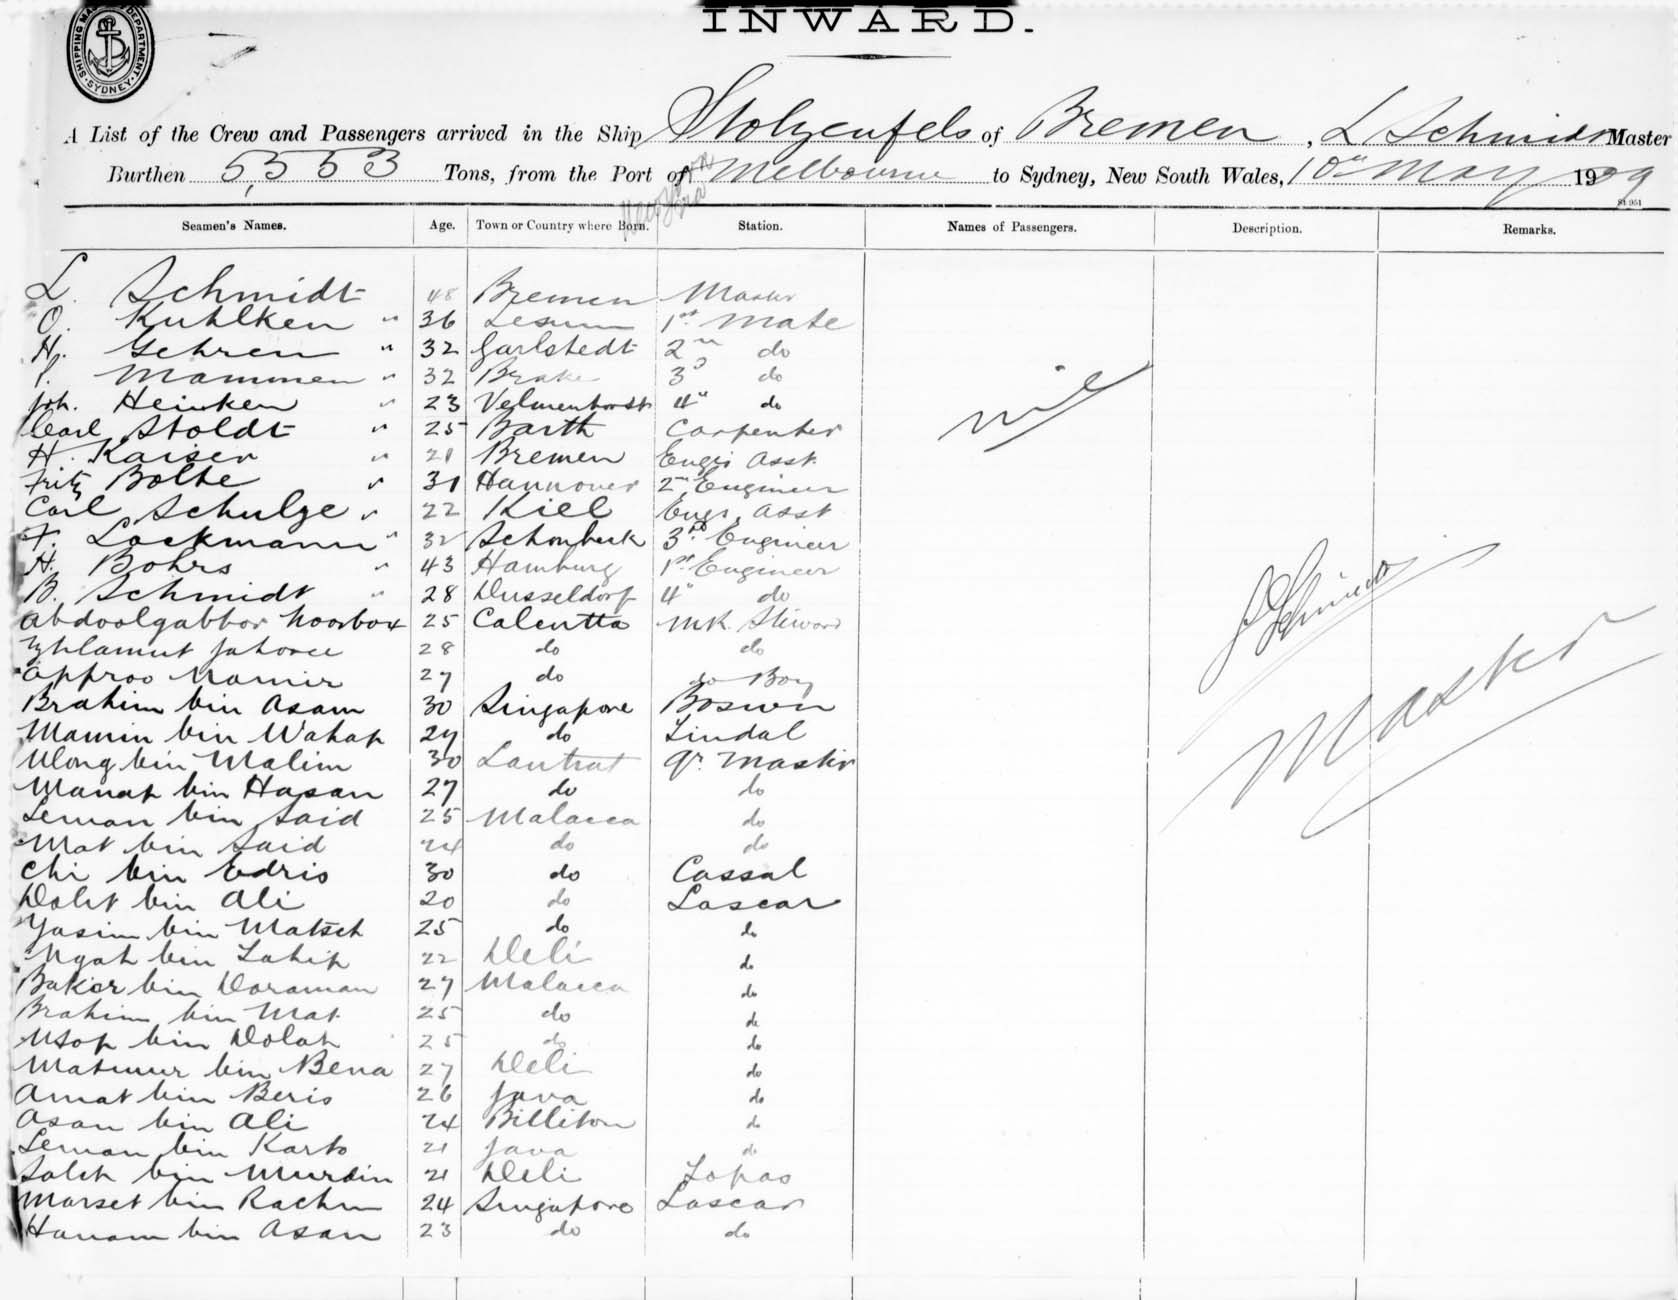 INWARD.
SHIPPING MASTER'S DEPARTMENT. SYDNEY
A List of the Crew and Passengers arrived in the Ship Stolzenfels of Bremen, L Schmidt Master
Burthen 5,553 Tons, from the Port of Melbourne to Sydney, New South Wales, 10th May 1909
New York
St 951
Seamen's Names. Age. Town or Country where Born. Station. Names of Passengers. Description. Remarks.
L. Schmidt 48 Bremen Master
O. Kuhlken " 36 Lesum 1st Mate
H. Gehren " 32 Garlstedt 2nd do
Mammen " 32 Brake 3d do
Joh. Heinken " 23 Velmenhorst 4" do
nil
Carl Stoldt " 25 Barth Carpenter
H. Kaiser " 21 Bremen Engrs Asst.
Fritz Bolte " 31 Hannover 2nd Engineer
Carl Schulze " 22 Kiel Engrs Asst
F. Lockmann " 32 Schonbeck 3rd Engineer
H. Bohrs " 43 Hamburg 1st Engineer
B. Schmidt " 28 Dusseldorf 4" do
Abdoolgabbor Noorbox 25 Calcutta Mk. Steward
28 do do
Approo Namir 27 do do Boy
Brahim bin Asam 30 Singapore Boswn
Mamin bin Wahap 27 do Tindal
Ulong bin Malim 30 Qr. Master
Manap bin Hasan 27 do do
Leman bin Said 25 Malacca do
Mat bin Said 24 do do
Chi bin Edris 30 do Cassab
Dolit bin Ali 20 do Lascar
Yasim bin Matseh 25 do do
Ngah bin Tahip 22 Deli do
Baker bin Doraman 27 Malacca do
Brahim bin Mat 25 do do
Usop bin Dolah 25 do do
Matnur bin Bena 27 Deli do
Amat bin Beris 26 Java do
Asan bin Ali 24 Billiton do
Leman bin Karto 21 Java do
Saleh bin Murdin 21 Deli Topas
Marset bin Rachim 24 Singapore Lascar
Hanam bin Asan 23 do do
L Schmidt
Master